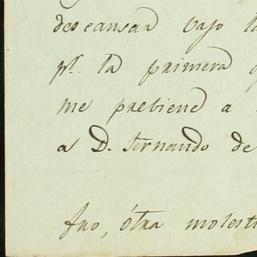 descansar bajo l
pr. la primera
me prebiene a
a D. Fernando de
fno, ótra molest